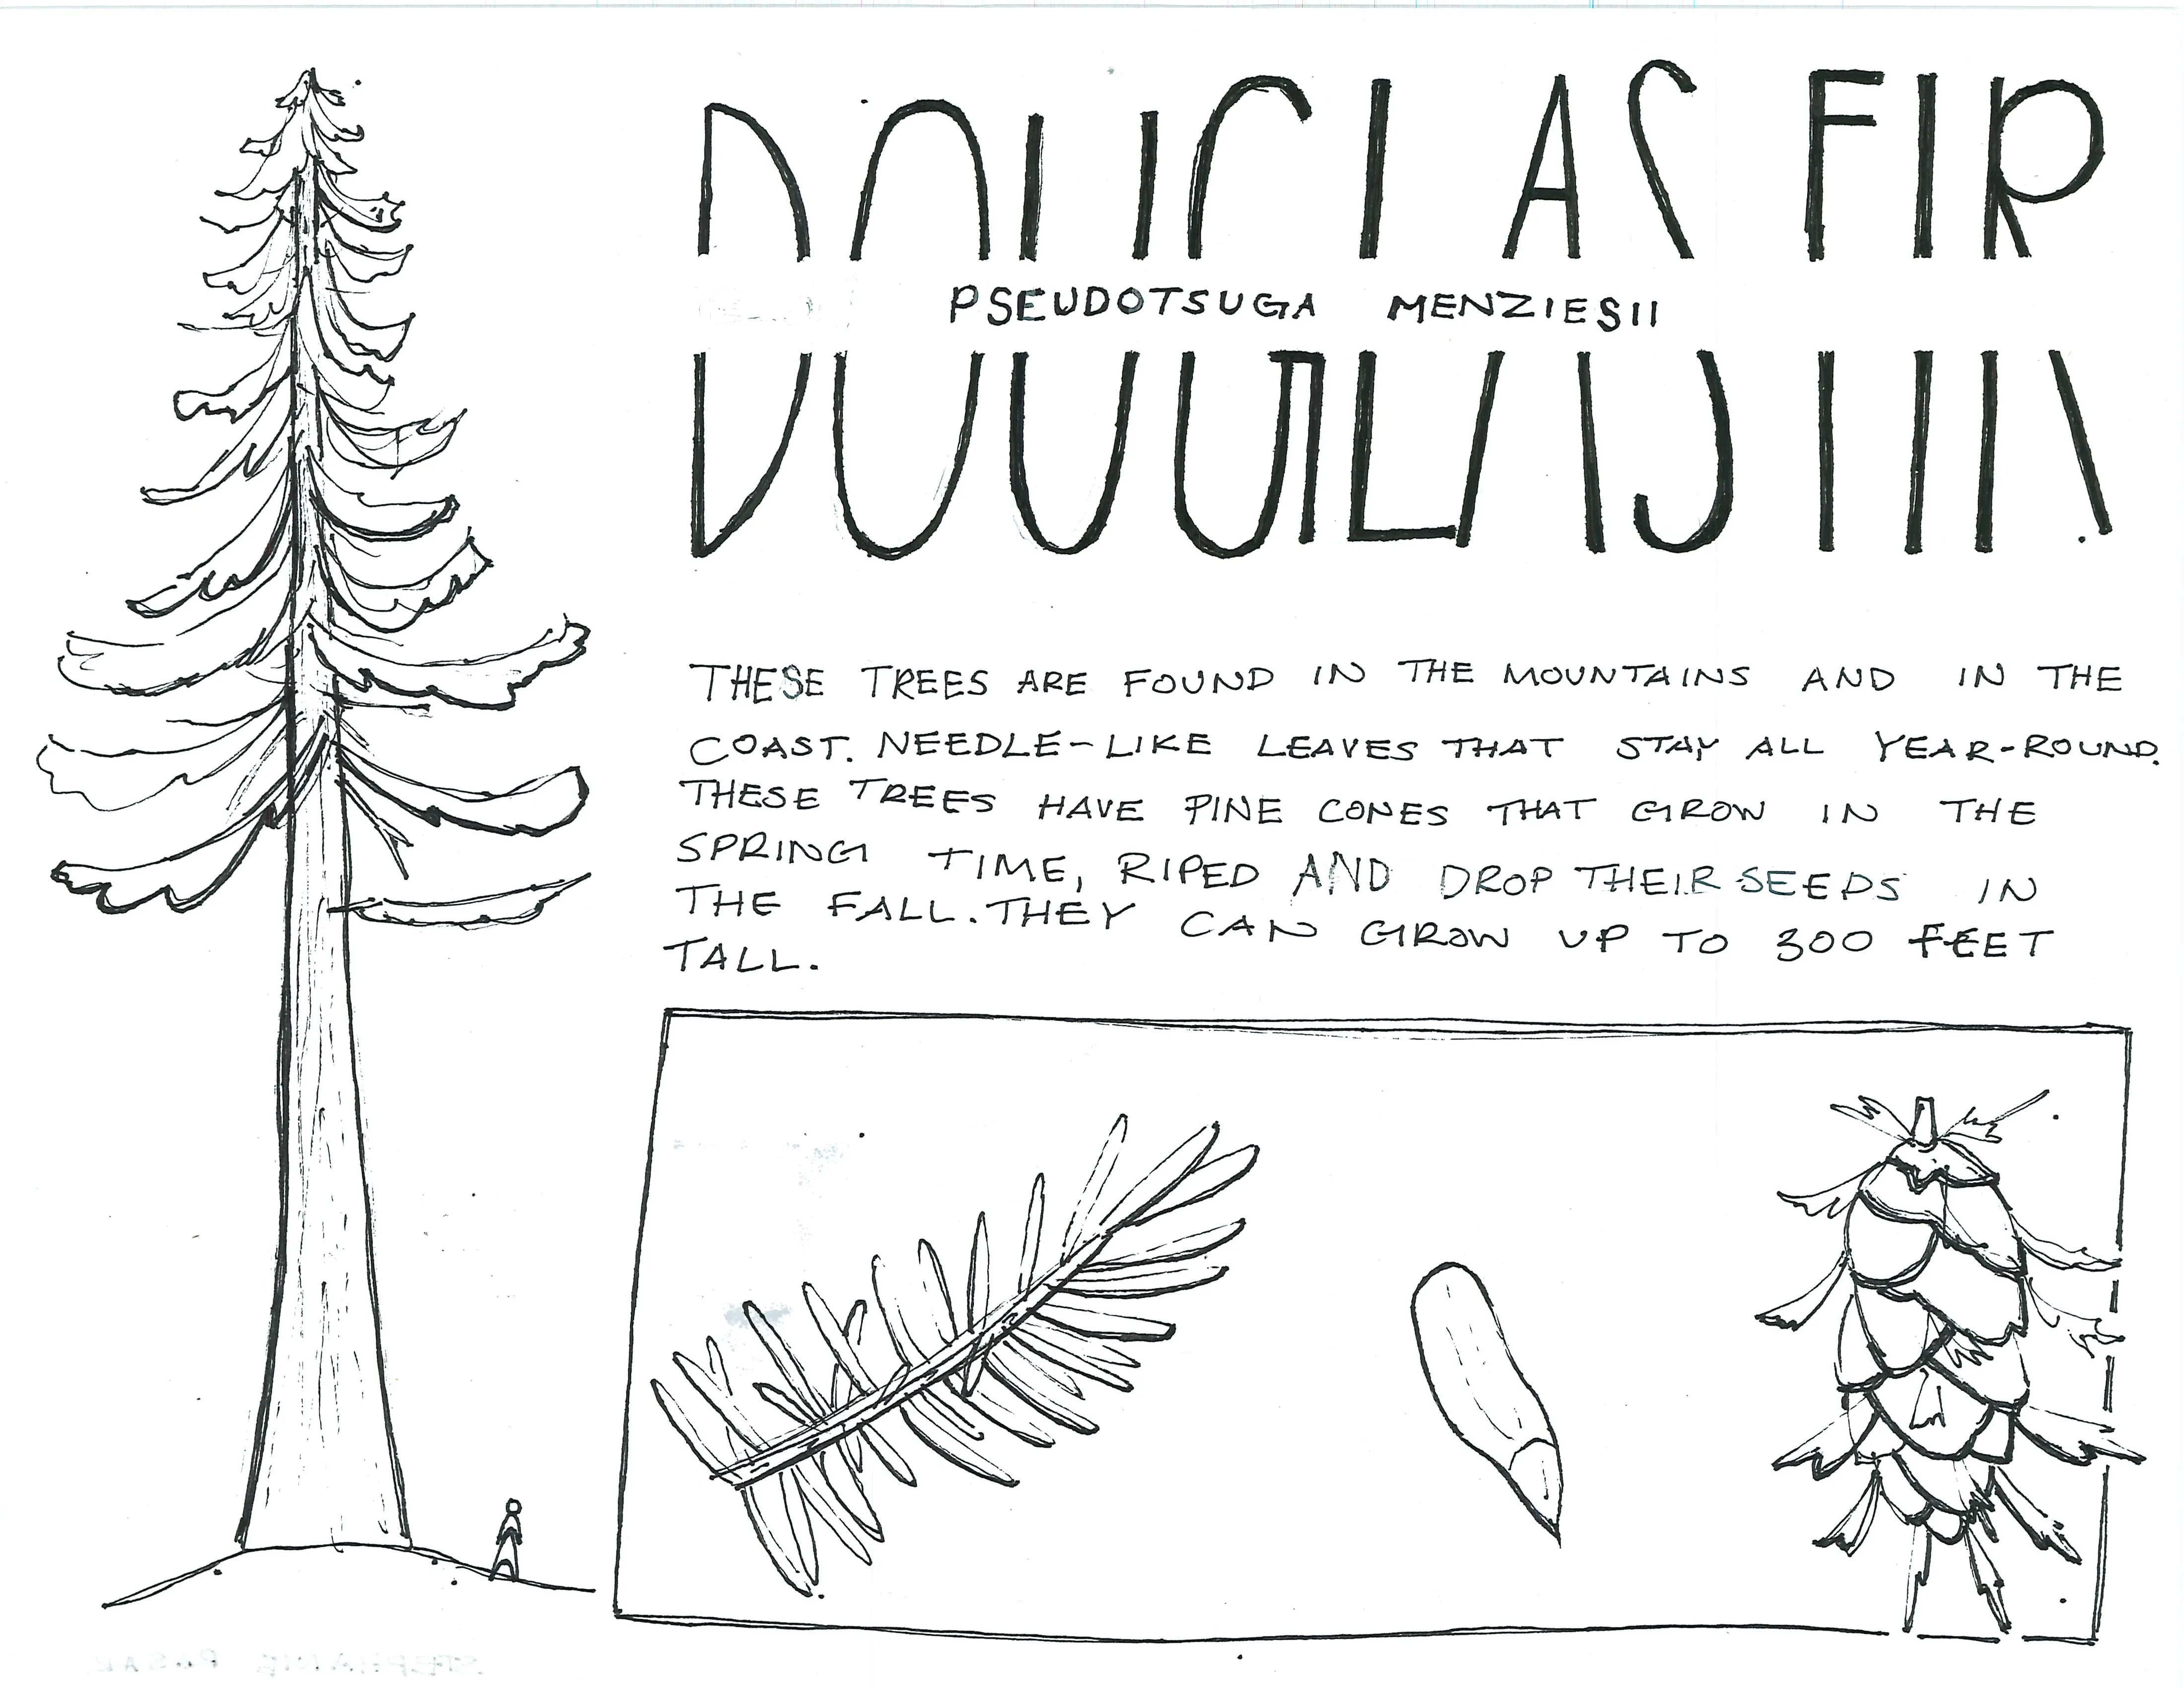 DOUGLAS FIR
PSEUDOTSUGA MENZIESII
THESE TREES ARE FOUND IN THE MOUNTAINS AND IN THE
COAST. NEEDLE-LIKE LEAVES THAT STAY ALL YEAR-ROUND.
THESE TREES HAVE PINE CONES THAT GROW IN THE
SPRING TIME, RIPED AND DROP THEIR SEEDS IN
THE FALL. THEY CAN GROW UP TO 300 FEET
TALL.